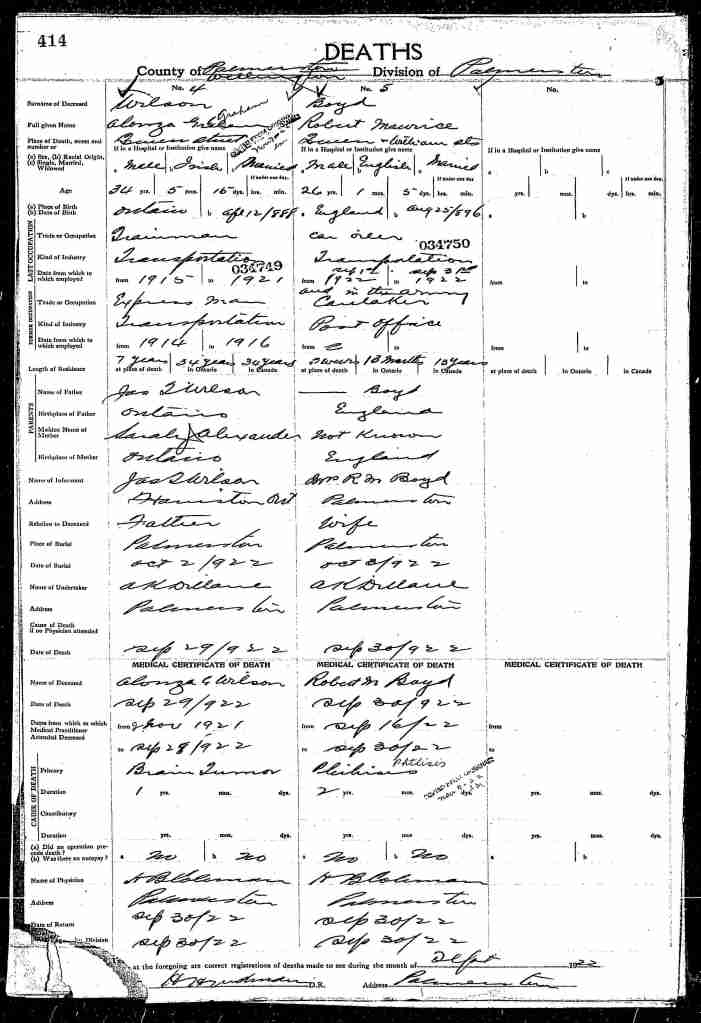 414
DEATHS
County of Wellington Division of Palmerston
No. 4 No. 5 No.
Surname of Deceased Wilson Boyd
Full given Name Alonza Graham Robert Maurice
Place of Death, street and number or Queen street Queen + William sts
If in a Hospital or Institution give name If in a Hospital or Institution give name If in a Hospital or Institution give name
(a) Sex, (b) Racial Origin, (c) Single, Married, Widowed a Male b Irish c Married a Male b English c Married a b c
If under one day. If under one day. If under one day.
Age 34 yrs. 5 mos. 16 dys. hrs. min. 26 yrs. 1 mos. 5 dys. hrs. min. yrs. mos. dys. hrs. min.
(a) Place of Birth (b) Date of Birth Ontario b Apl 12/888 England b Aug 25/896 a b
LAST OCCUPATION
Trade or Occupation Trainman car oiler
034749 034750
Kind of Industry Transportation Transportation
Date from which to which employed from 1915 to 1921 from sep 1st 1922 to sep 3rd 1922 from to
FORMER OCCUPATION
Trade or Occupation Express man and in the army Caretaker
Kind of Industry Transportation Post office
Date from which to which employed from 1914 to 1916 from to from to
Length of Residence 7 years 34 years 34 years 18 months
at place of death in Ontario in Canada at place of death in Ontario in Canada at place of death in Ontario in Canada
PARENTS
Name of Father Jas Wilson Boyd
Birthplace of Father Ontario England
Maiden Name of Mother Sarah J Alexander Not Known
Birthplace of Mother Ontario England
Name of Informant Jas Wilson Mrs R M Boyd
Address Harriston Ont Palmerston
Relation to Deceased Father Wife
Place of Burial Palmerston Palmerston
Date of Burial oct 2/922 oct 3/922
Name of Undertaker A K Dillane A K Dillane
Address Palmerston Palmerston
Cause of Death if no Physician attended
Date of Death sep 29/922 sep 30/922
MEDICAL CERTIFICATE OF DEATH MEDICAL CERTIFICATE OF DEATH MEDICAL CERTIFICATE OF DEATH
Name of Deceased Alonza G Wilson Robert M Boyd
Date of Death sep 29/922 sep 30/922
Dates from which to which Medical Practitioner Attended Deceased from Nov 1921 from sep 16/22 from
to sep 28/922 to sep 30/22 to
CAUSE OF DEATH
Primary Brain Tumor Phthisis
Duration 1 yrs. mos. dys. 2 yrs. mos. dys. yrs. mos. dys.
Contributory
Duration yrs. mos. dys. yrs. mos. dys. yrs. mos. dys.
(a) Did an operation precede death? (b) Was there an autopsy? a no b no a No b No a b
Name of Physician H B Coleman H B Coleman
Address Palmerston Palmerston
Date of Return sep 30/22 sep 30/22
by Division sep 30/22 sep 30/22
at the foregoing are correct registrations of deaths made to me during the month of Sept 1922
D.R. Address Palmerston